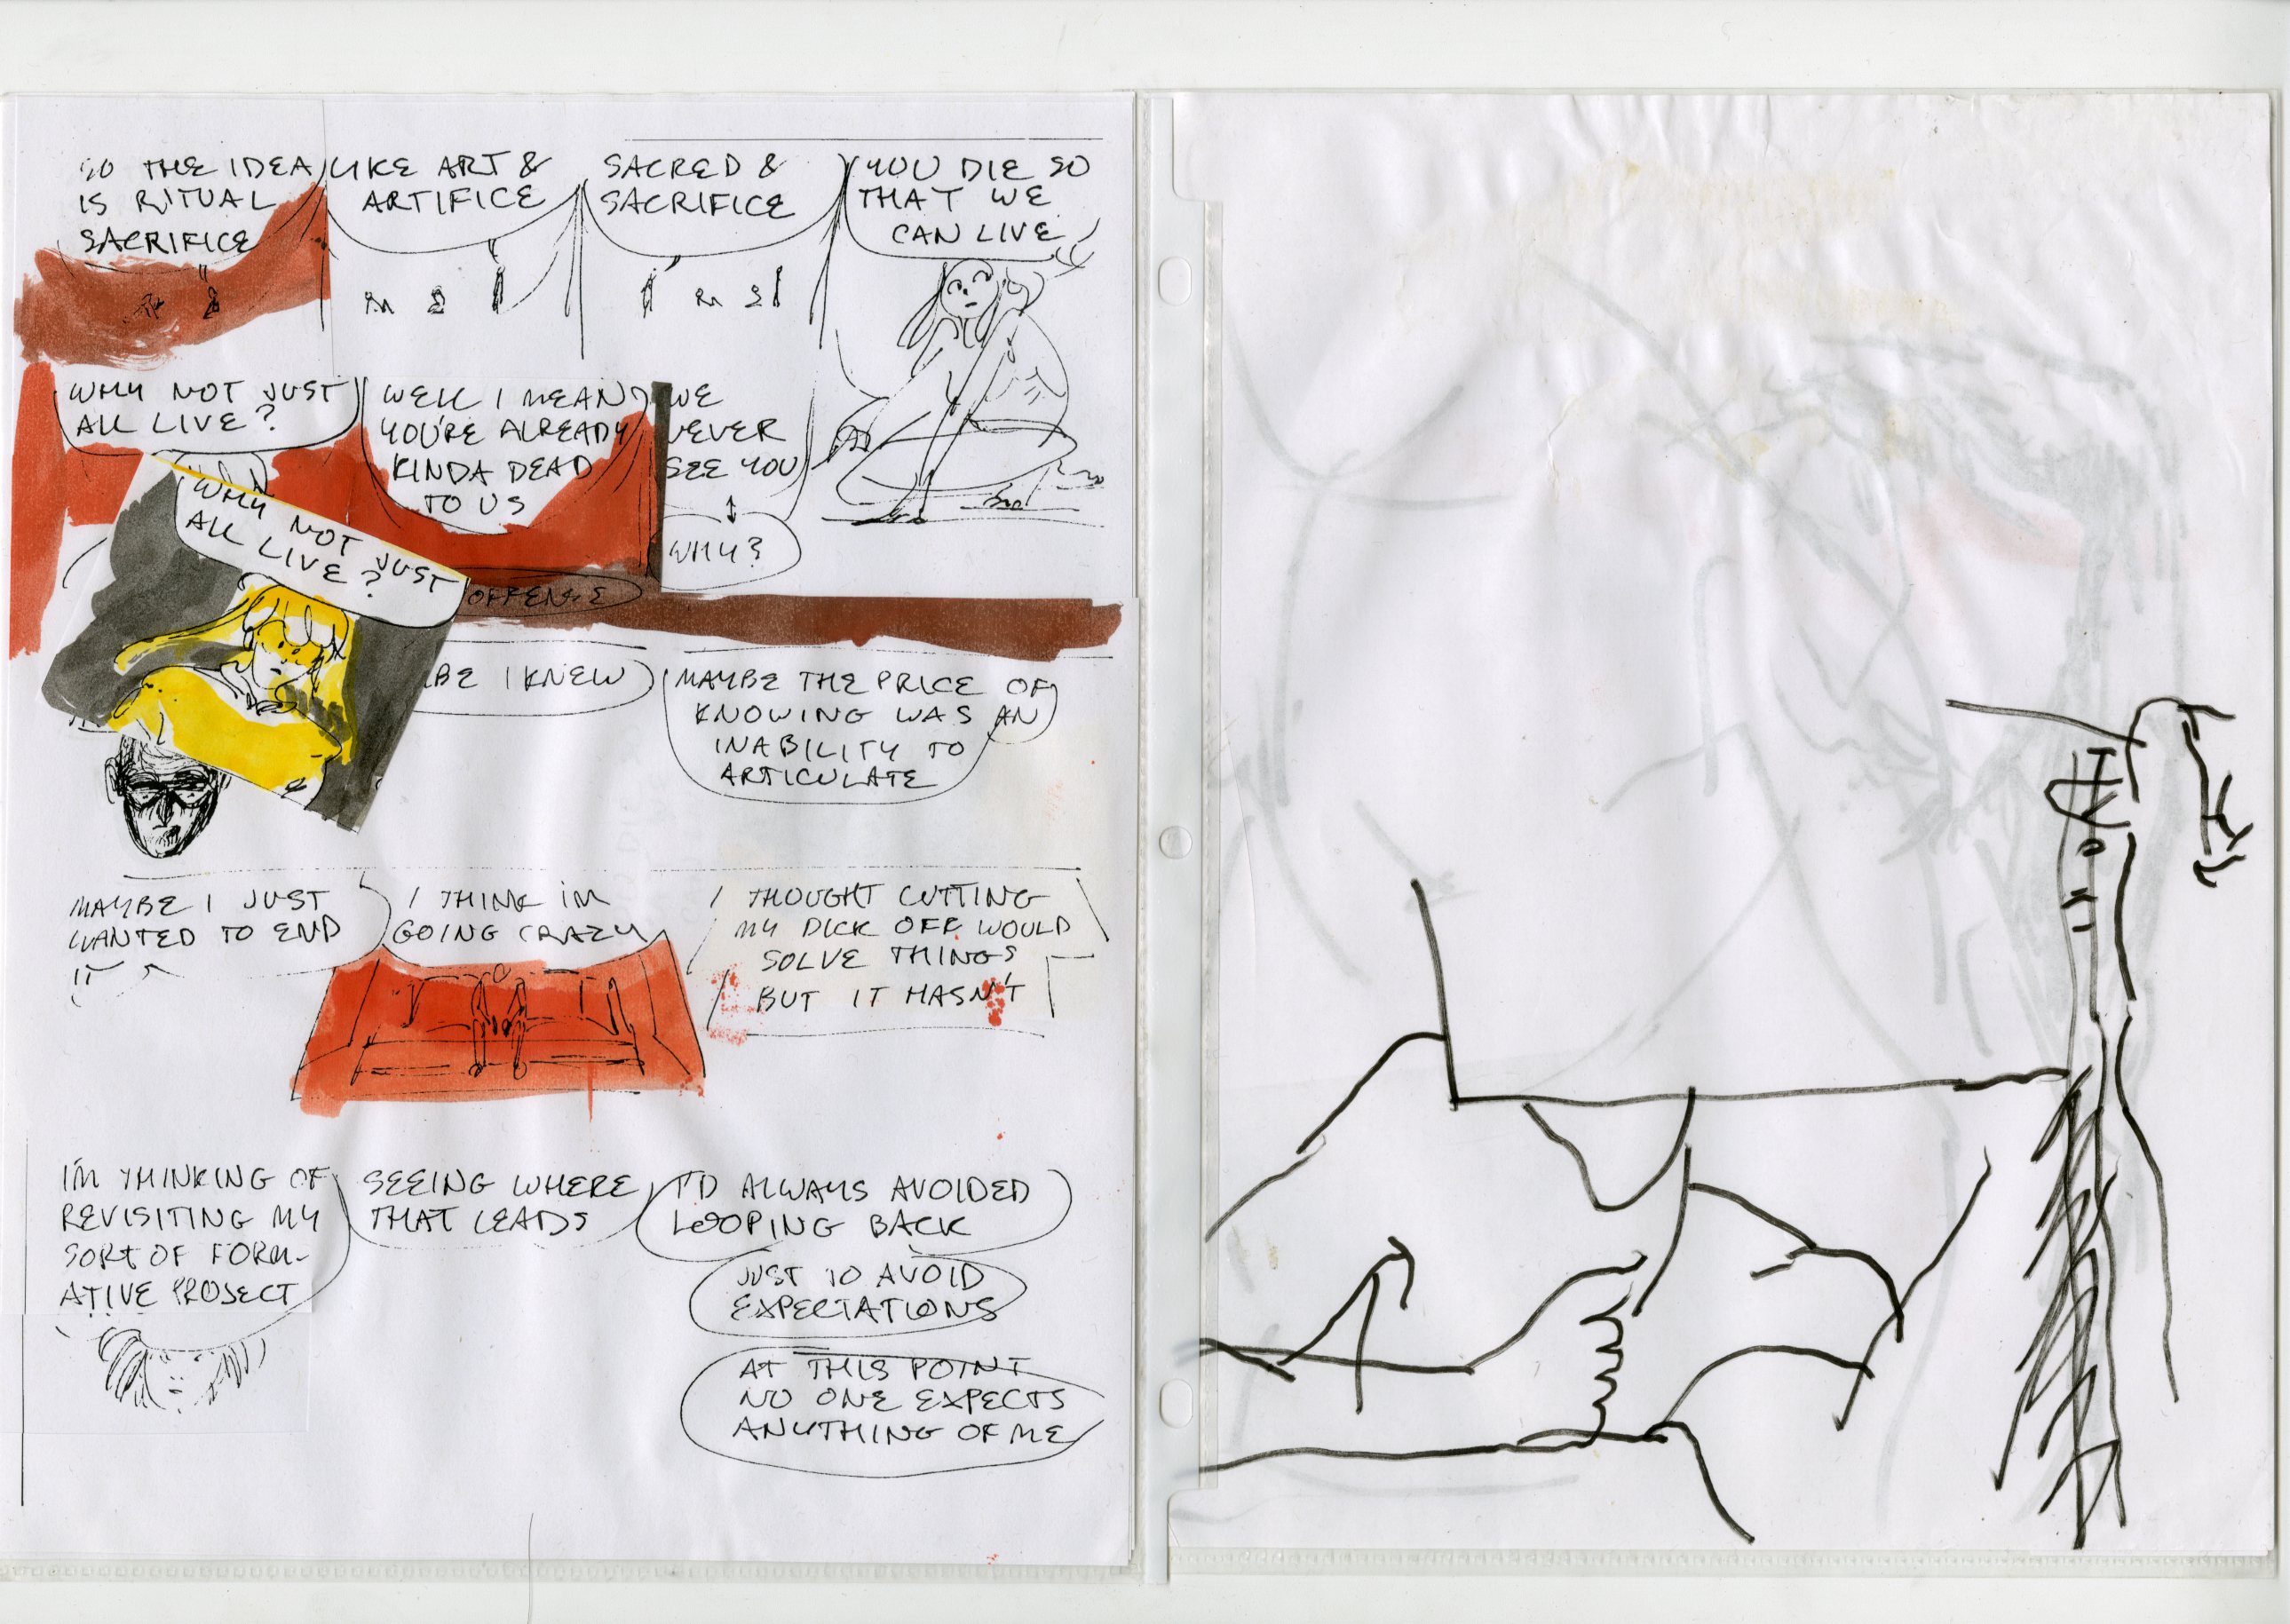 SO THE IDEA
IS RITUAL
SACRIFICE
LIKE ART &
ARTIFICE
SACRED &
SACRIFICE
YOU DIE SO
THAT WE
CAN LIVE
WHY NOT JUST
ALL LIVE?
WELL I MEAN
YOU'RE ALREADY
KINDA DEAD
TO US
WE
NEVER
SEE YOU
WHY?
WHY NOT JUST
ALL LIVE?
OFFENSE
BE I KNEW
MAYBE THE PRICE OF
KNOWING WAS AN
INABILITY TO
ARTICULATE
MAYBE I JUST
WANTED TO END
IT
I THINK IM
GOING CRAZY
I THOUGHT CUTTING
MY DICK OFF WOULD
SOLVE THINGS
BUT IT HASN'T
I'M THINKING OF
REVISITING MY
SORT OF FORM-
ATIVE PROJECT
SEEING WHERE
THAT LEADS
I'D ALWAYS AVOIDED
LOOPING BACK
JUST TO AVOID
EXPECTATIONS
AT THIS POINT
NO ONE EXPECTS
ANYTHING OF ME